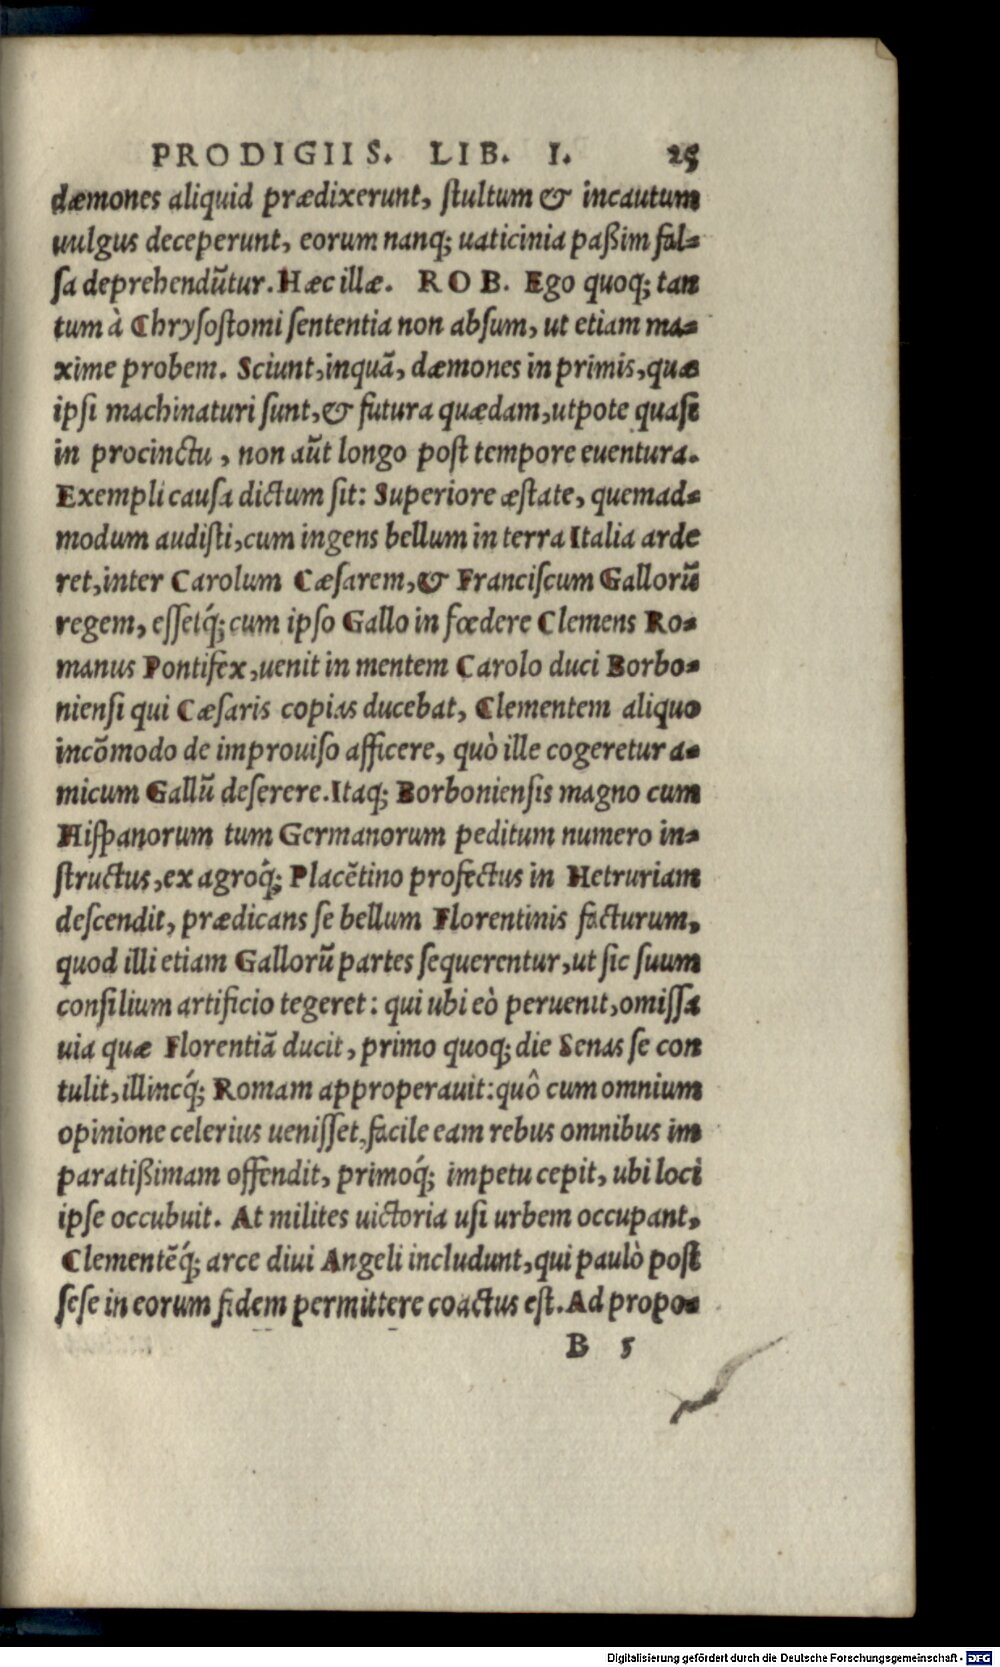 PRODIGIIS. LIB. I. 25
dæmones aliquid prædixerunt, ſtultum & incautum
uulgus deceperunt, eorum nanq; uaticinia paßim fal-
ſa deprehendũtur. Hæc illæ. ROB. Ego quoq; tan
tum à Chryſoſtomi ſententia non abſum, ut etiam ma-
xime probem. Sciunt, inquã, dæmones in primis, quæ
ipſi machinaturi ſunt, & futura quædam, utpote quaſi
in procinctu, non aũt longo poſt tempore euentura.
Exempli cauſa dictum ſit: Superiore æſtate, quemad-
modum audiſti, cum ingens bellum in terra Italia arde
ret, inter Carolum Cæſarem, & Franciſcum Gallorũ
regem, eſſetq́; cum ipſo Gallo in fœdere Clemens Ro-
manus Pontifex, uenit in mentem Carolo duci Borbo-
nienſi qui Cæſaris copias ducebat, Clementem aliquo
incõmodo de improuiſo afficere, quò ille cogeretur a-
micum Gallũ deſerere. Itaq; Borbonienſis magno cum
Hiſpanorum tum Germanorum peditum numero in-
ſtructus, ex agroq́; Placẽtino profectus in Hetruriam
deſcendit, prædicans ſe bellum Florentinis facturum,
quod illi etiam Gallorũ partes ſequerentur, ut ſic ſuum
conſilium artificio tegeret: qui ubi eò peruenit, omiſſa
uia quæ Florentiã ducit, primo quoq; die Senas ſe con
tulit, illincq́; Romam approperauit: quô cum omnium
opinione celerius ueniſſet, facile eam rebus omnibus im
paratißimam offendit, primoq́; impetu cepit, ubi loci
ipſe occubuit. At milites uictoria uſi urbem occupant,
Clementẽq́; arce diui Angeli includunt, qui paulò poſt
ſeſe in eorum fidem permittere coactus eſt. Ad propo-
B 5
Digitalisierung gefördert durch die Deutsche Forschungsgemeinschaft - DFG